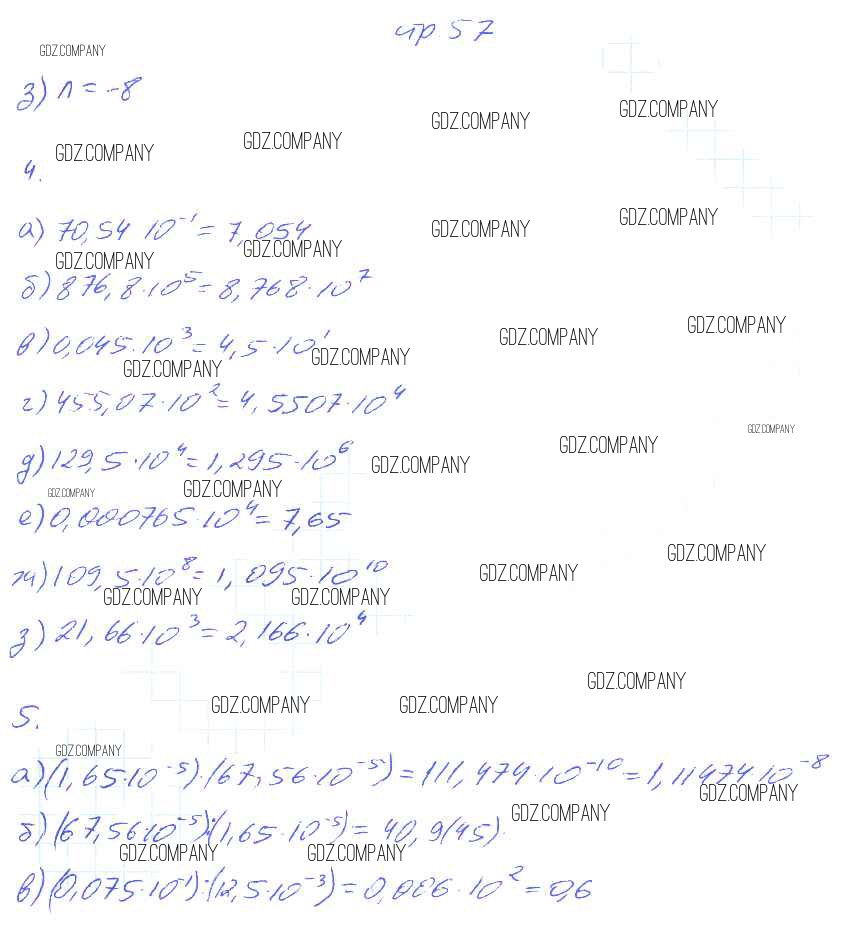 стр. 57
GDZ.COMPANY
з) n = -8
GDZ.COMPANY GDZ.COMPANY GDZ.COMPANY GDZ.COMPANY
4.
а) 70,54 · 10⁻¹ = 7,054
GDZ.COMPANY GDZ.COMPANY GDZ.COMPANY GDZ.COMPANY
б) 876,8 · 10⁵ = 8,768 · 10⁷
в) 0,045 · 10³ = 4,5 · 10¹
GDZ.COMPANY GDZ.COMPANY GDZ.COMPANY GDZ.COMPANY
г) 455,07 · 10² = 4,5507 · 10⁴
GDZ.COMPANY
д) 129,5 · 10⁴ = 1,295 · 10⁶
GDZ.COMPANY GDZ.COMPANY GDZ.COMPANY GDZ.COMPANY
е) 0,000765 · 10⁴ = 7,65
ж) 109,5 · 10⁸ = 1,095 · 10¹⁰
GDZ.COMPANY GDZ.COMPANY GDZ.COMPANY GDZ.COMPANY
з) 21,66 · 10³ = 2,166 · 10⁴
5.
GDZ.COMPANY GDZ.COMPANY GDZ.COMPANY
GDZ.COMPANY
а) (1,65 · 10⁻⁵) · (67,56 · 10⁻⁵) = 111,474 · 10⁻¹⁰ = 1,11474 · 10⁻⁸
GDZ.COMPANY
б) (67,56 · 10⁻⁵) : (1,65 · 10⁻⁵) = 40,9(45)
GDZ.COMPANY GDZ.COMPANY GDZ.COMPANY
в) (0,075 · 10⁻¹) : (12,5 · 10⁻³) = 0,006 · 10² = 0,6